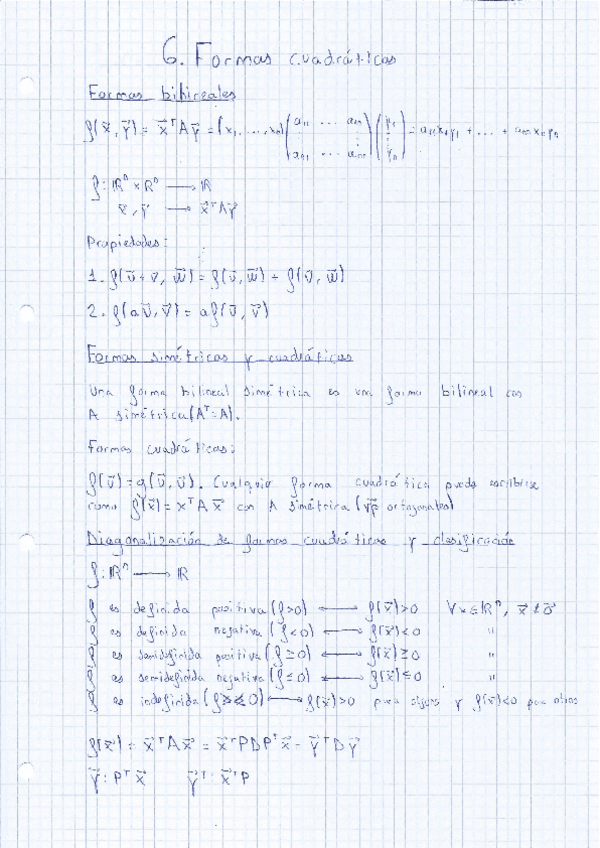 6. Formas cuadráticas
Formas bilineales
f(x⃗, y⃗) = x⃗ᵀAy⃗ = (x₁, ..., xₙ) (a₁₁ ... a₁ₙ ⋮ aₙ₁ ... aₙₙ) (y₁ ⋮ yₙ) = a₁₁x₁y₁ + ... + aₙₙxₙyₙ
f: ℝⁿ × ℝⁿ ⟶ ℝ
x⃗, y⃗ ⟶ x⃗ᵀAy⃗
Propiedades:
1. f(u⃗+v⃗, w⃗) = f(u⃗, w⃗) + f(v⃗, w⃗)
2. f(au⃗, v⃗) = af(u⃗, v⃗)
Formas simétricas y cuadráticas
Una forma bilineal simétrica es una forma bilineal con
A simétrica (Aᵀ=A).
Formas cuadráticas:
f(u⃗) = g(u⃗, u⃗). Cualquier forma cuadrática puede escribirse
como f(x⃗) = xᵀA x⃗ con A simétrica (vp ortogonales)
Diagonalización de formas cuadráticas y clasificación
f: ℝⁿ ⟶ ℝ
f es definida positiva (f>0) ⟷ f(x⃗)>0 ∀x∈ℝⁿ, x⃗≠0⃗
f es definida negativa (f<0) ⟷ f(x⃗)<0 "
f es semidefinida positiva (f≥0) ⟷ f(x⃗)≥0 "
f es semidefinida negativa (f≤0) ⟷ f(x⃗)≤0 "
f es indefinida (f≥≤0) ⟷ f(x⃗)>0 para algunos y f(x⃗)<0 para otros
f(x⃗) = x⃗ᵀAx⃗ = x⃗ᵀPDPᵀx⃗ = y⃗ᵀDy⃗
y⃗: Pᵀx⃗ y⃗ᵀ: x⃗ᵀP